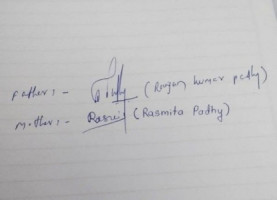 Father :- (Rogan kumar padhy)
Mother :- Rasmi (Rasmita Padhy)